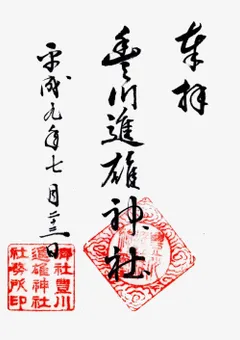 奉拝
豊川進雄神社
平成九年七月二十三日
郷社豊川
進雄神社
社務所印